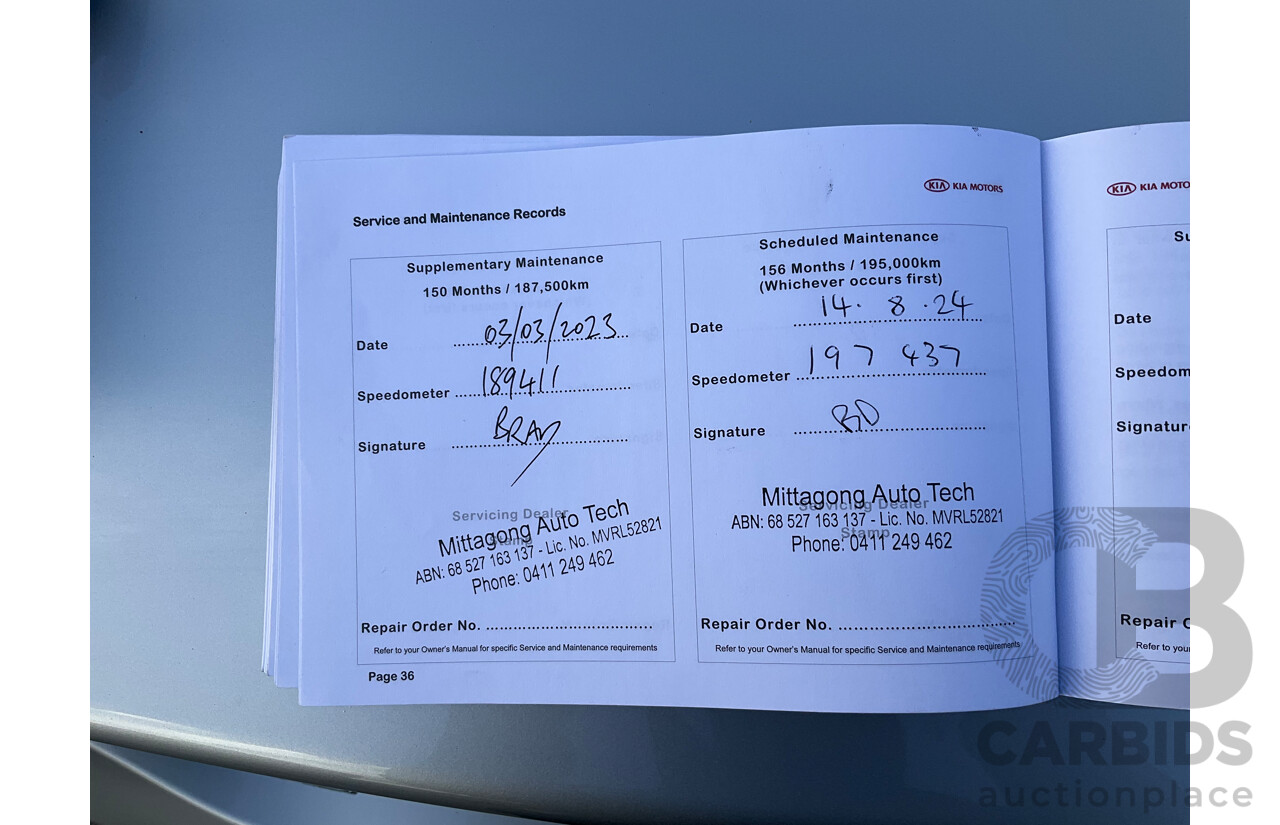 Service and Maintenance Records
KIA KIA MOTORS
Supplementary Maintenance
150 Months / 187,500km
Date 03/03/2023
Speedometer 189411
Signature
Servicing Dealer
Stamp
Mittagong Auto Tech
ABN: 68 527 163 137 - Lic. No. MVRL52821
Phone: 0411 249 462
Repair Order No.
Refer to your Owner's Manual for specific Service and Maintenance requirements
Page 36
Scheduled Maintenance
156 Months / 195,000km
(Whichever occurs first)
Date 14. 8 .24
Speedometer 197 437
Signature
Servicing Dealer
Stamp
Mittagong Auto Tech
ABN: 68 527 163 137 - Lic. No. MVRL52821
Phone: 0411 249 462
Repair Order No.
Refer to your Owner's Manual for specific Service and Maintenance requirements
KIA KIA MOTO
Su
Date
Speedom
Signatur
Repair O
Refer to your
CB
CARBIDS
auctionplace